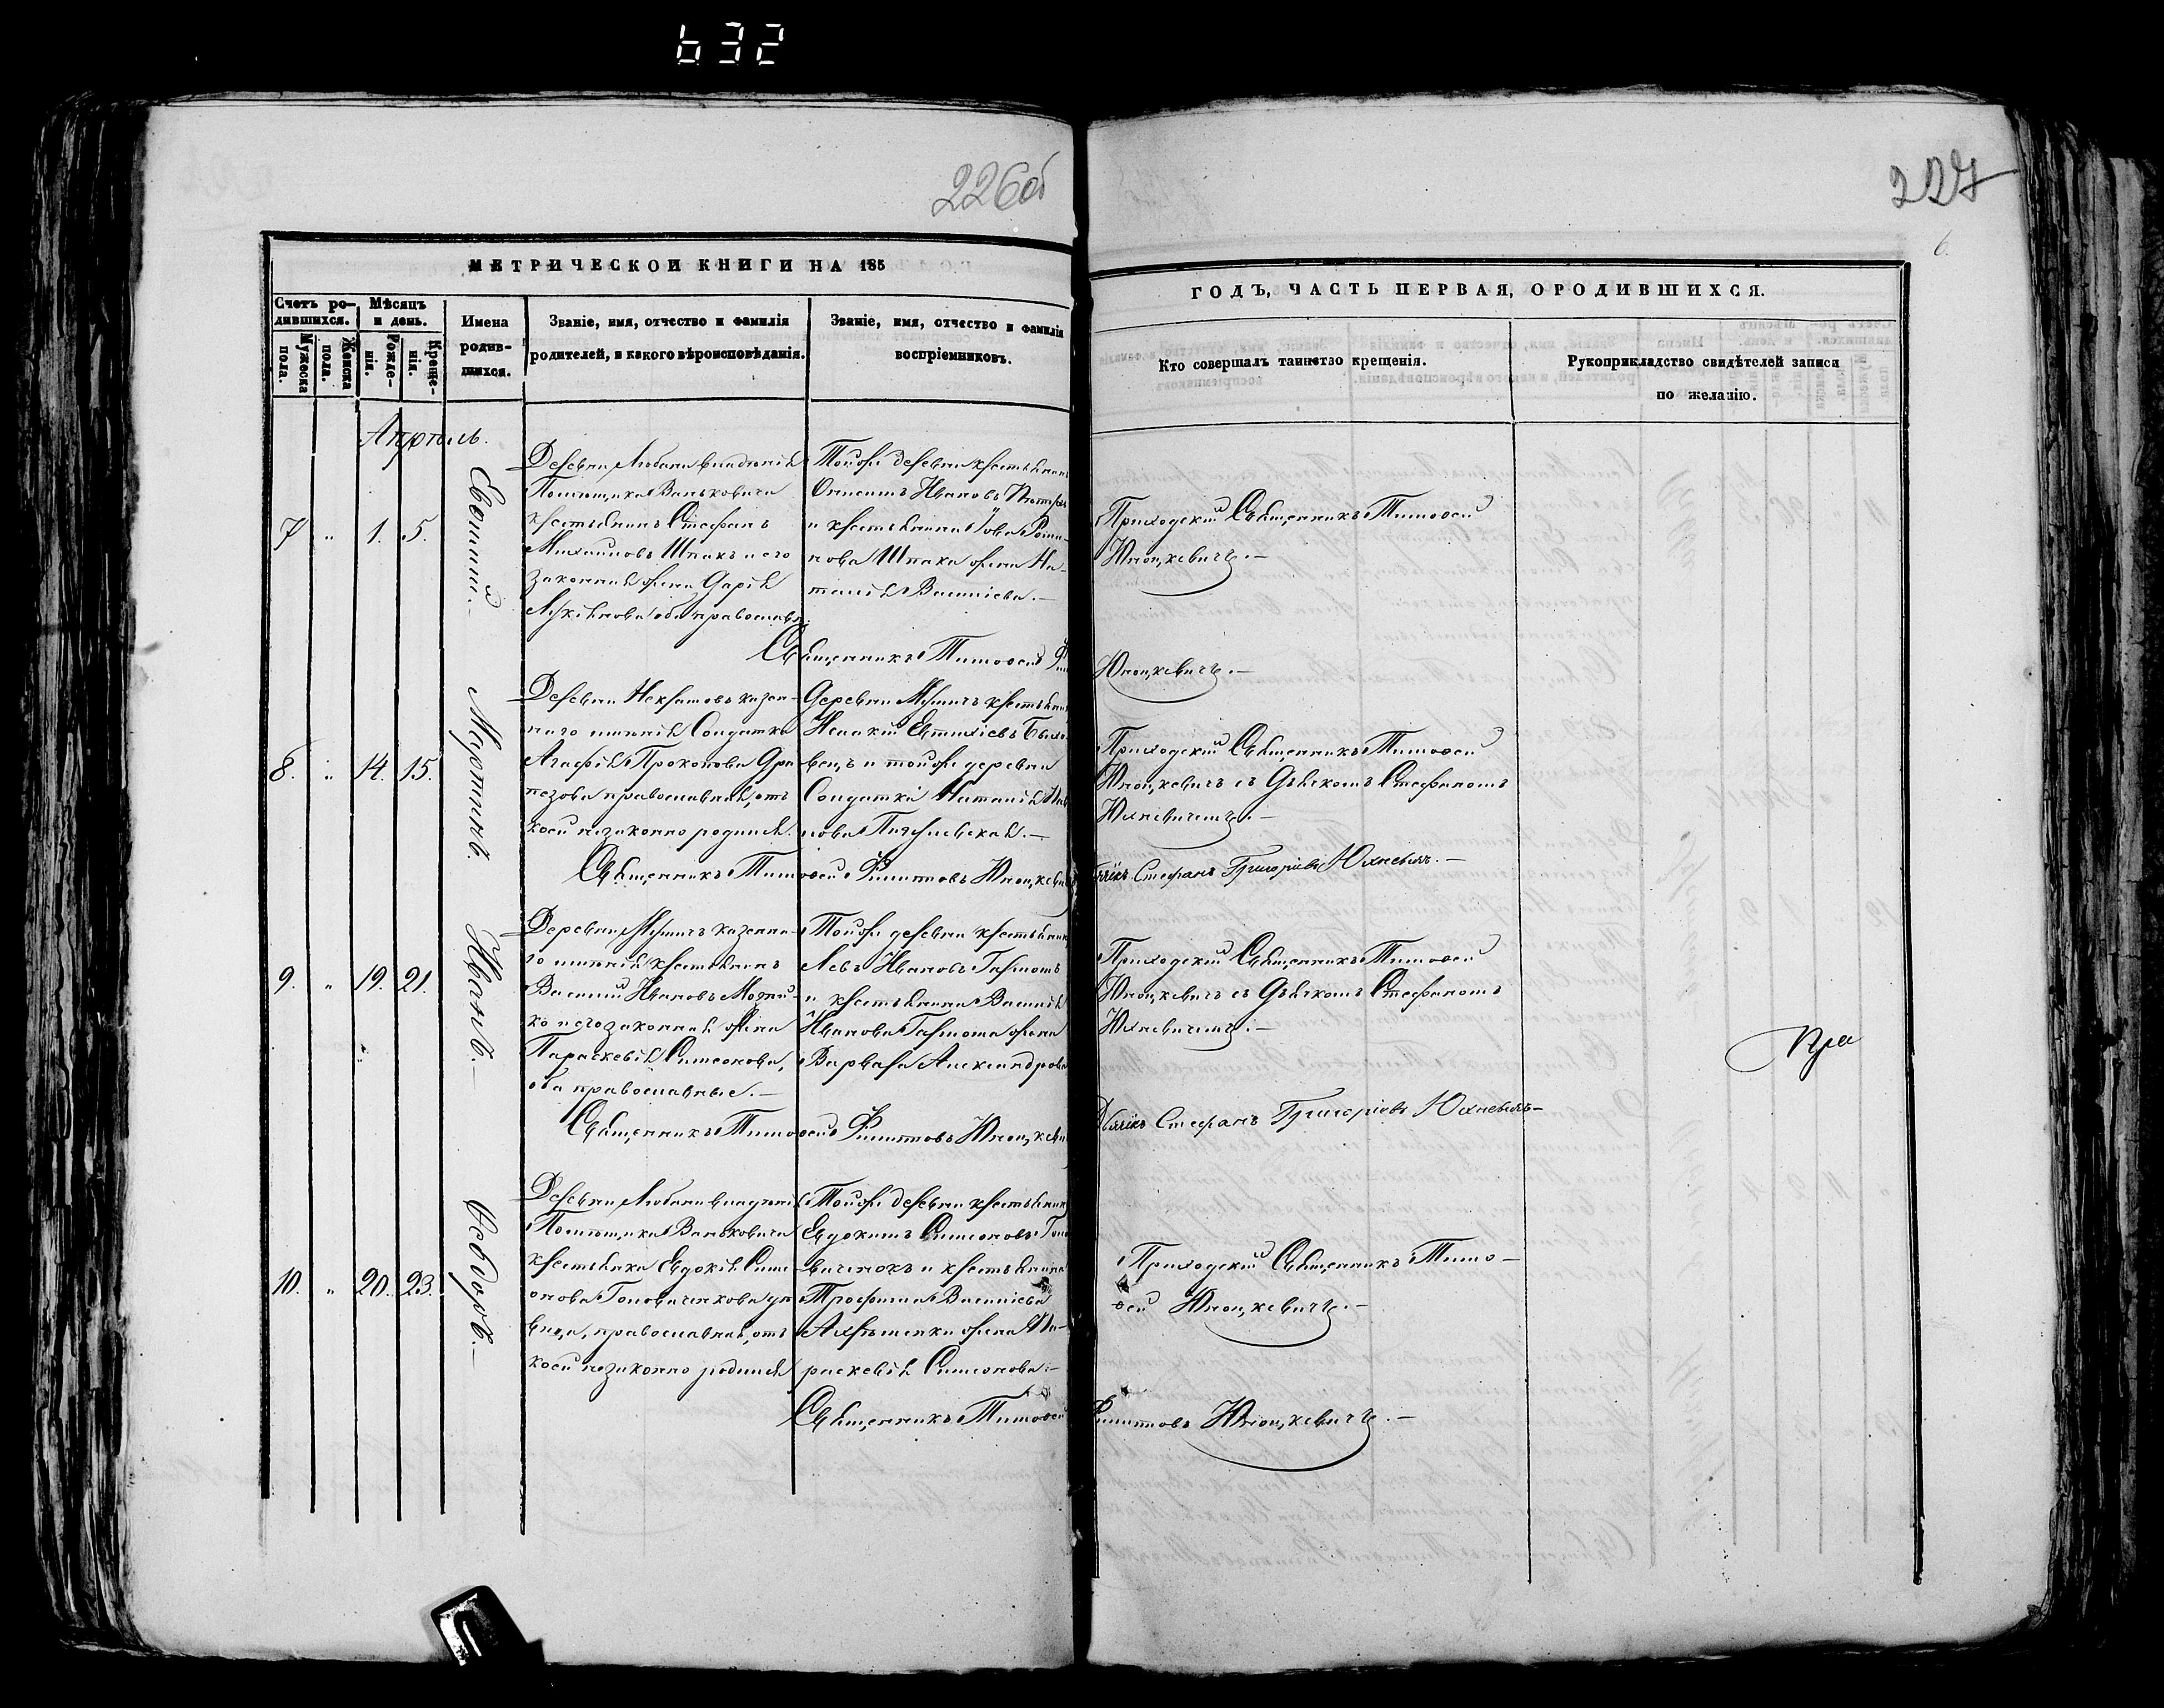 632
226об
227
6.
МЕТРИЧЕСКОЙ КНИГИ НА 185
ГОДЪ, ЧАСТЬ ПЕРВАЯ, ОРОДИВШИХСЯ.
Счетъ ро-
дившихся.
Мужеска
пола.
Женска
пола.
Мѣсяцъ
и день.
Рожде-
нія.
Креще-
нія.
Имена
родив-
шихся.
Званіе, имя, отчество и фамилія
родителей, и какого вѣроисповѣданія.
Званіе, имя, отчество и фамилія
воспріемниковъ.
Кто совершалъ таинство крещенія.
Рукоприкладство свидѣтелей записи
по желанію.
Апрѣль.
7 " 1. 5.
Деревни Любани владѣнія
Помѣщика Ваньковича
крестьянинъ Стефанъ
Михайловъ Шпакъ и его
законная жена Дарія
Лукіянова оба православн.
Тойже деревни крестьянинъ
Онисимъ Ивановъ
и крестьянина Іова Рома-
нова Шпака жена На-
талія Васильева.—
Приходскій Священникъ Тимоѳей
Юноцкевичъ.—
Священникъ Тимоѳей
Юноцкевичъ.—
8. " 14. 15.
Мартинъ.
Деревни Некрашовъ казен-
наго имѣнія Солдатка
Агафія Прокопова
православная, отъ
коей незаконно родился.
Деревни крестьянинъ
Евтихіевъ
и тойже деревни
Солдатка Наталія
Приходскій Священникъ Тимоѳей
Юноцкевичъ съ Дьячкомъ Стефаномъ
Юхневичемъ.—
Священникъ Тимоѳей Филиповъ Юноцкевичъ
Стефанъ Григоріевъ Юхневичъ.—
9. " 19. 21.
Деревни казенна-
го имѣнія крестьянинъ
Василій Ивановъ
и его законная жена
Параскевія Симеонова,
оба православные.—
Тойже деревни крестьянинъ
Левъ Ивановъ
и крестьянина Василія
Иванова жена
Варвара Александрова
Приходскій Священникъ Тимоѳей
Юноцкевичъ съ Дьячкомъ Стефаномъ
Юхневичемъ.—
Священникъ Тимоѳей Филиповъ Юноцкевичъ
Дьячікъ Стефанъ Григоріевъ Юхневичъ—
Пра
10. " 20. 23.
Ѳеодоръ.—
Деревни Любани владѣнія
Помѣщика Ваньковича
крестьянка Евдокія Симе-
онова
православная, отъ
коей незаконно родился
Тойже деревни крестьянинъ
Евдокимъ Симеоновъ
и крестьянина
Трофима Васильева
жена Па-
раскевія Симеонова.—
Приходскій Священникъ Тимо-
ѳей Юноцкевичъ.—
Священникъ Тимоѳей
Филиповъ Юноцкевичъ.—